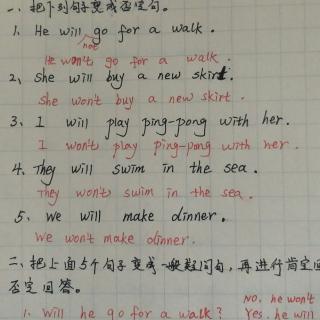 一、把下列句子变成否定句。
1. He will go for a walk.
not
He won't go for a walk.
2、She will buy a new skirt.
She won't buy a new skirt.
3、I will play ping-pong with her.
I won't play ping-pong with her.
4. They will swim in the sea.
They won't swim in the sea.
5、We will make dinner.
We won't make dinner.
二、把上面5个句子变成一般疑问句，再进行肯定回
否定回答。
No, he won't
1. Will he go for a walk? Yes, he will